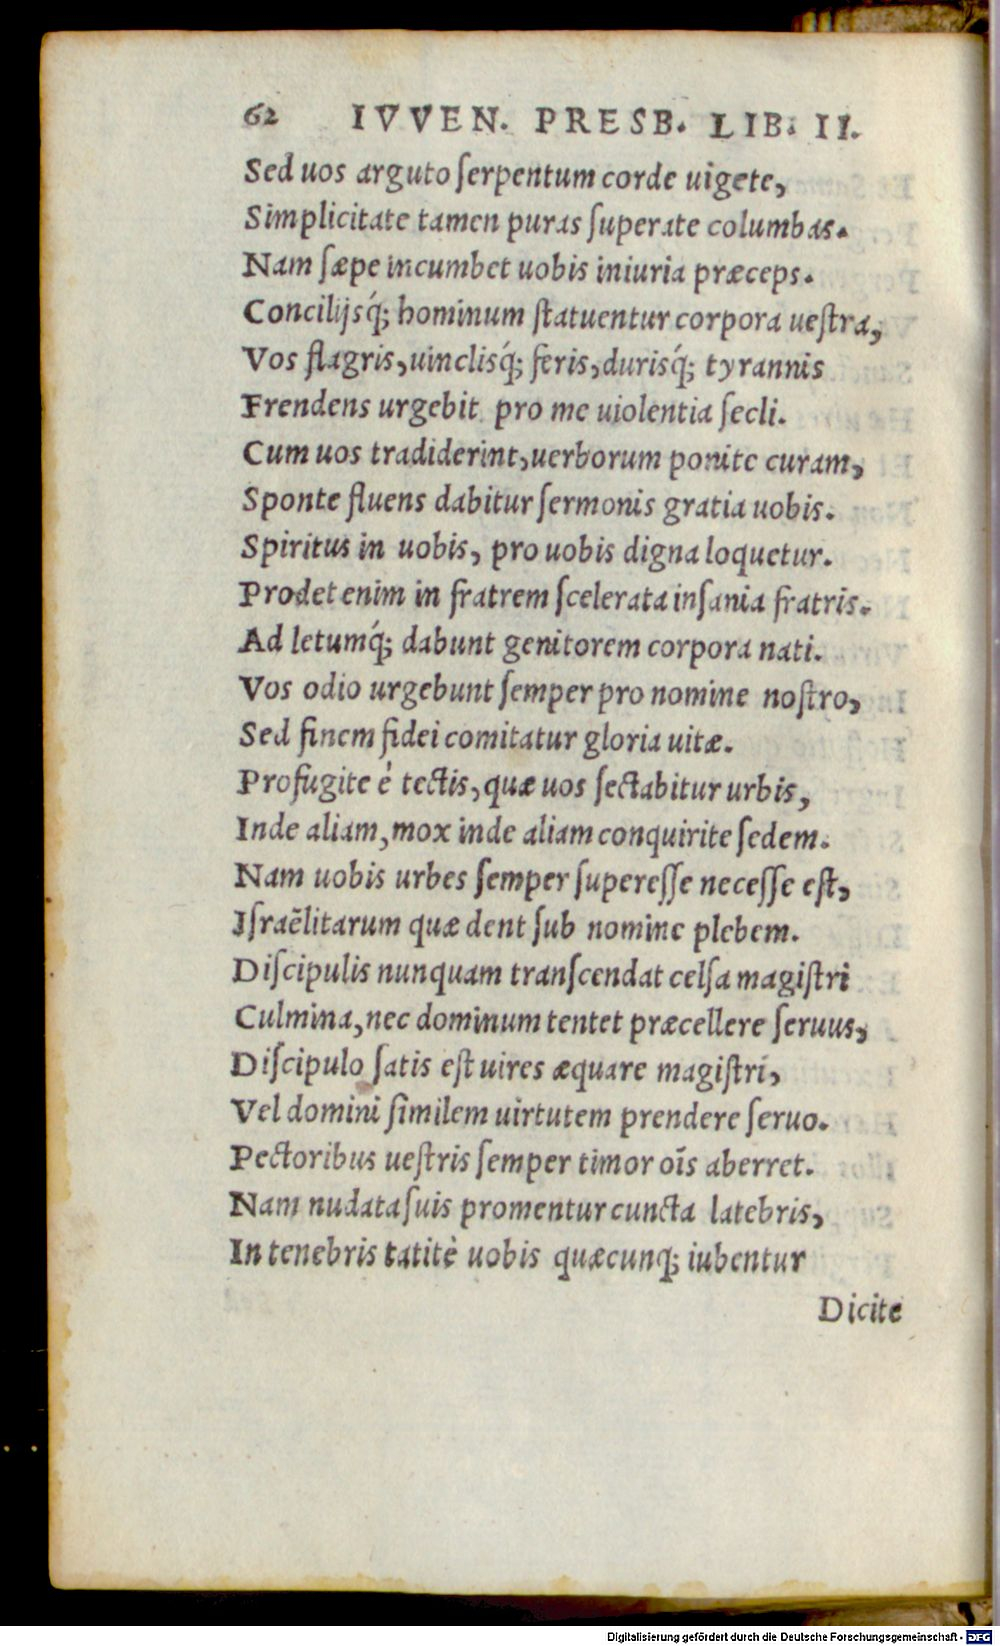 62 IVVEN. PRESB. LIB. II.
Sed uos arguto ſerpentum corde uigete,
Simplicitate tamen puras ſuperate columbas.
Nam ſæpe incumbet uobis iniuria præceps.
Concilijsq́; hominum ſtatuentur corpora ueſtra,
Vos flagris, uinclisq́; feris, durisq́; tyrannis
Frendens urgebit pro me uiolentia ſecli.
Cum uos tradiderint, uerborum ponite curam,
Sponte fluens dabitur ſermonis gratia uobis.
Spiritus in uobis, pro uobis digna loquetur.
Prodet enim in fratrem ſcelerata inſania fratris.
Ad letumq́; dabunt genitorem corpora nati.
Vos odio urgebunt ſemper pro nomine noſtro,
Sed finem fidei comitatur gloria uitæ.
Profugite è tectis, quæ uos ſectabitur urbis,
Inde aliam, mox inde aliam conquirite ſedem.
Nam uobis urbes ſemper ſupereſſe neceſſe eſt,
Iſraẽlitarum quæ dent ſub nomine plebem.
Diſcipulis nunquam tranſcendat celſa magiſtri
Culmina, nec dominum tentet præcellere ſeruus,
Diſcipulo ſatis eſt uires æquare magiſtri,
Vel domini ſimilem uirtutem prendere ſeruo.
Pectoribus ueſtris ſemper timor oīs aberret.
Nam nudata ſuis promentur cuncta latebris,
In tenebris tatitè uobis quæcunq; iubentur
Dicite
Digitalisierung gefördert durch die Deutsche Forschungsgemeinschaft - DFG